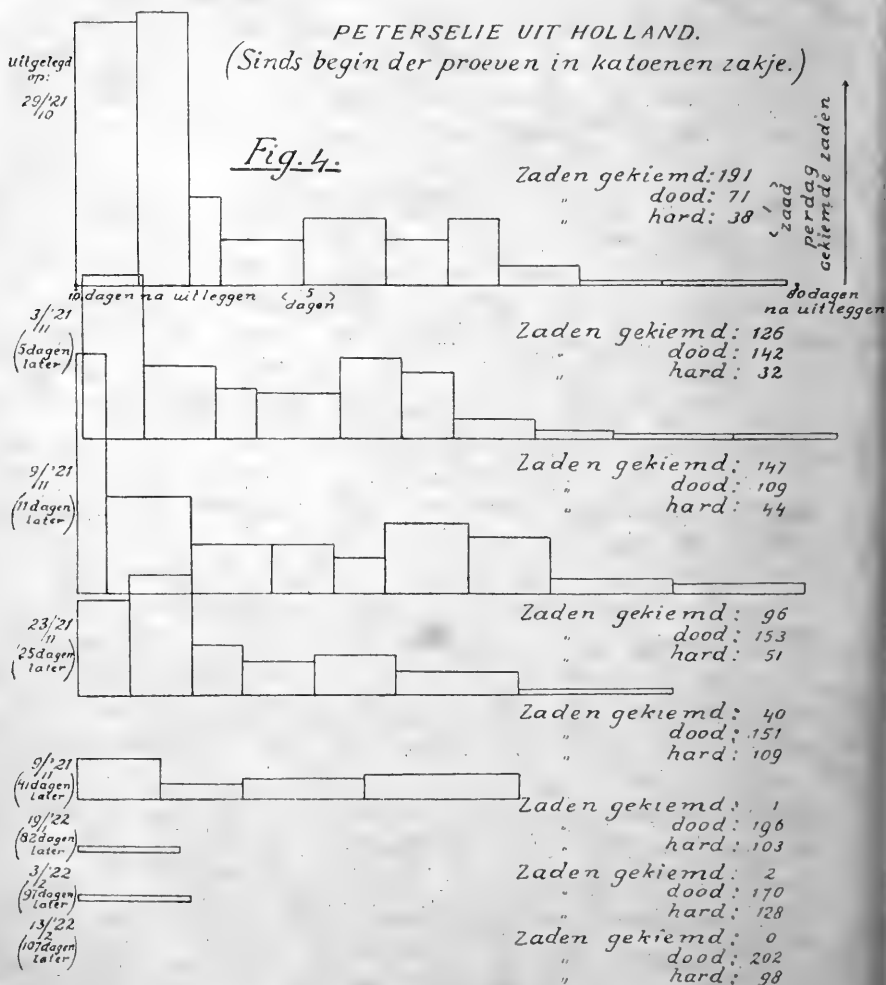 PETERSELIE UIT HOLLAND.
(Sinds begin der proeven in katoenen zakje.)
Fig. 4.
uitgelegd
op:
29/'21
10
Zaden gekiemd: 191
„ dood: 71
„ hard: 38
1
zaad
perdag
gekiemde zaden
10 dagen na uitleggen
5
dagen
80 dagen
na uitleggen
3/'21
11
(5 dagen
later)
Zaden gekiemd: 126
„ dood: 142
„ hard: 32
9/'21
11
(11 dagen
later)
Zaden gekiemd: 147
„ dood: 109
„ hard: 44
23/'21
11
(25 dagen
later)
Zaden gekiemd: 96
„ dood: 153
„ hard: 51
9/'21
11
(41 dagen
later)
Zaden gekiemd: 40
„ dood: 151
„ hard: 109
19/'22
1
(82 dagen
later)
Zaden gekiemd: 1
„ dood: 196
„ hard: 103
3/'22
2
(97 dagen
later)
Zaden gekiemd: 2
„ dood: 170
„ hard: 128
13/'22
2
(107 dagen
later)
Zaden gekiemd: 0
„ dood: 202
„ hard: 98